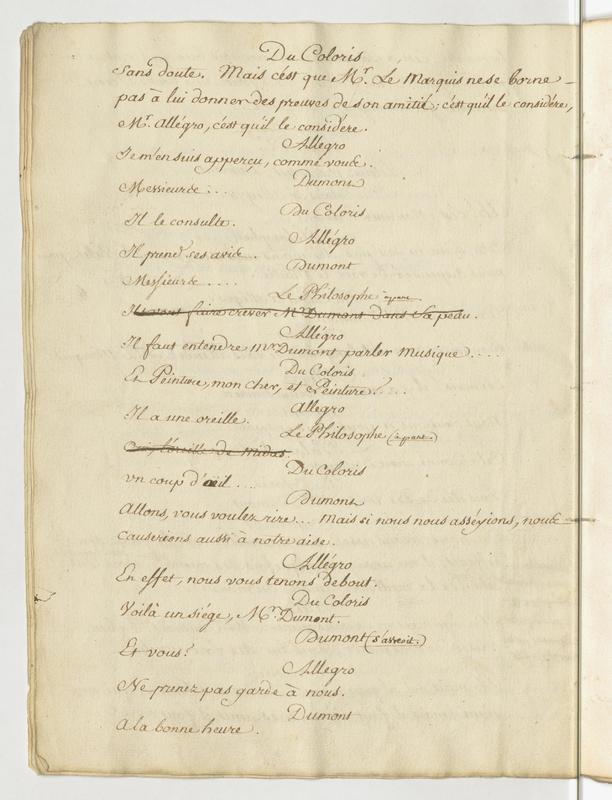 Du Coloris
Sans doute. Mais c'est que Mr. Le Marquis ne se borne
pas à lui donner des preuves de son amitié; c'est qu'il le considére,
Mr. Allégro, c'est qu'il le considére.
Allegro
Je m'en suis apperçu, comme vous.
Dumont
Messieurs....
Du Coloris
Il le consulte.
Allégro
Il prend ses avis.
Dumont
Messieurs....
Le Philosophe à part
Ils vont faire crever Mr Dumont dans sa peau.
Allégro
Il faut entendre Mr Dumont parler musique....
Du Coloris
Et Peinture, mon cher, et Peinture?...
Allegro
Il a une oreille.
Le Philosophe (à part.)
Oui, l'oreille de Midas.
Du Coloris
un coup d'œil....
Dumont
Allons, vous voulez rire... Mais si nous nous asséyions, nous
causerions aussi à notre aise.
Allégro
En effet, nous vous tenons debout.
Du Coloris
Voilà un siége, Mr. Dumont.
Dumont (s'asseoit.)
Et vous?
Allegro
Ne prenez pas garde à nous.
Dumont
A la bonne heure.